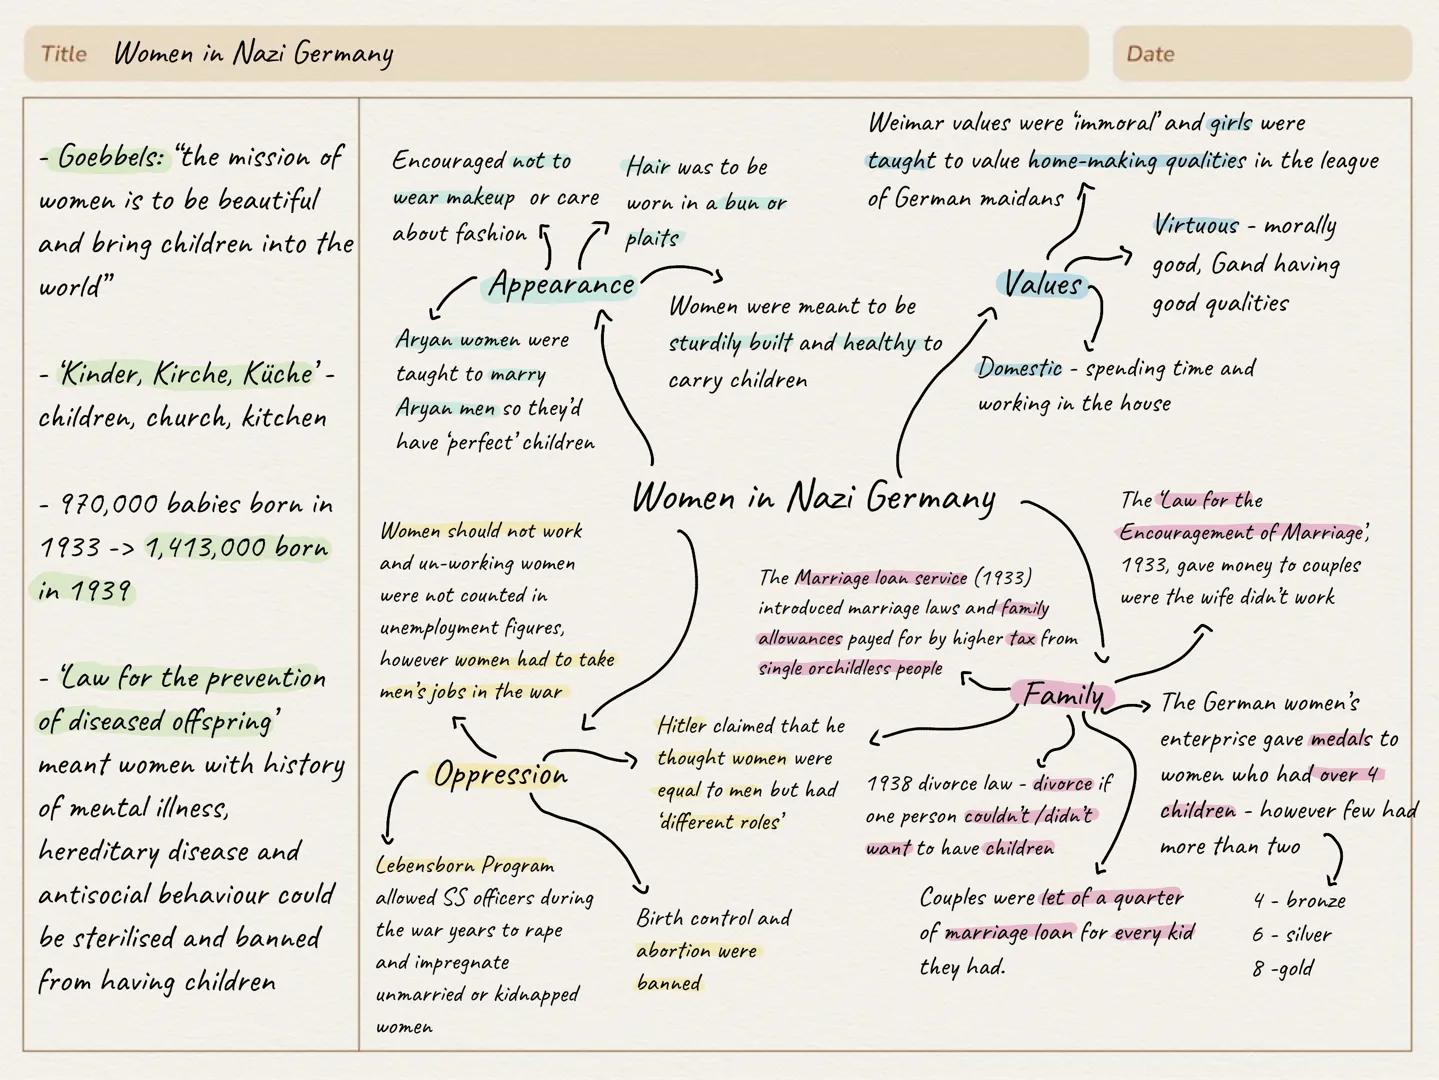 Title Women in Nazi Germany
Date
- Goebbels: “the mission of
women is to be beautiful
and bring children into the
world”
- ‘Kinder, Kirche, Küche’ -
children, church, kitchen
- 970,000 babies born in
1933 -> 1,413,000 born
in 1939
- ‘Law for the prevention
of diseased offspring’
meant women with history
of mental illness,
hereditary disease and
antisocial behaviour could
be sterilised and banned
from having children
Encouraged not to
wear makeup or care
about fashion
Hair was to be
worn in a bun or
plaits
Appearance
Aryan women were
taught to marry
Aryan men so they’d
have ‘perfect’ children
Women were meant to be
sturdily built and healthy to
carry children
Weimar values were ‘immoral’ and girls were
taught to value home-making qualities in the league
of German maidans
Values
Virtuous - morally
good, Gand having
good qualities
Domestic - spending time and
working in the house
Women in Nazi Germany
Women should not work
and un-working women
were not counted in
unemployment figures,
however women had to take
men’s jobs in the war
Oppression
Hitler claimed that he
thought women were
equal to men but had
‘different roles’
Lebensborn Program
allowed SS officers during
the war years to rape
and impregnate
unmarried or kidnapped
women
Birth control and
abortion were
banned
The Marriage loan service (1933)
introduced marriage laws and family
allowances payed for by higher tax from
single orchildless people
The ‘Law for the
Encouragement of Marriage’,
1933, gave money to couples
were the wife didn’t work
Family
1938 divorce law - divorce if
one person couldn’t/didn’t
want to have children
The German women’s
enterprise gave medals to
women who had over 4
children - however few had
more than two
Couples were let of a quarter
of marriage loan for every kid
they had.
4 - bronze
6 - silver
8 -gold